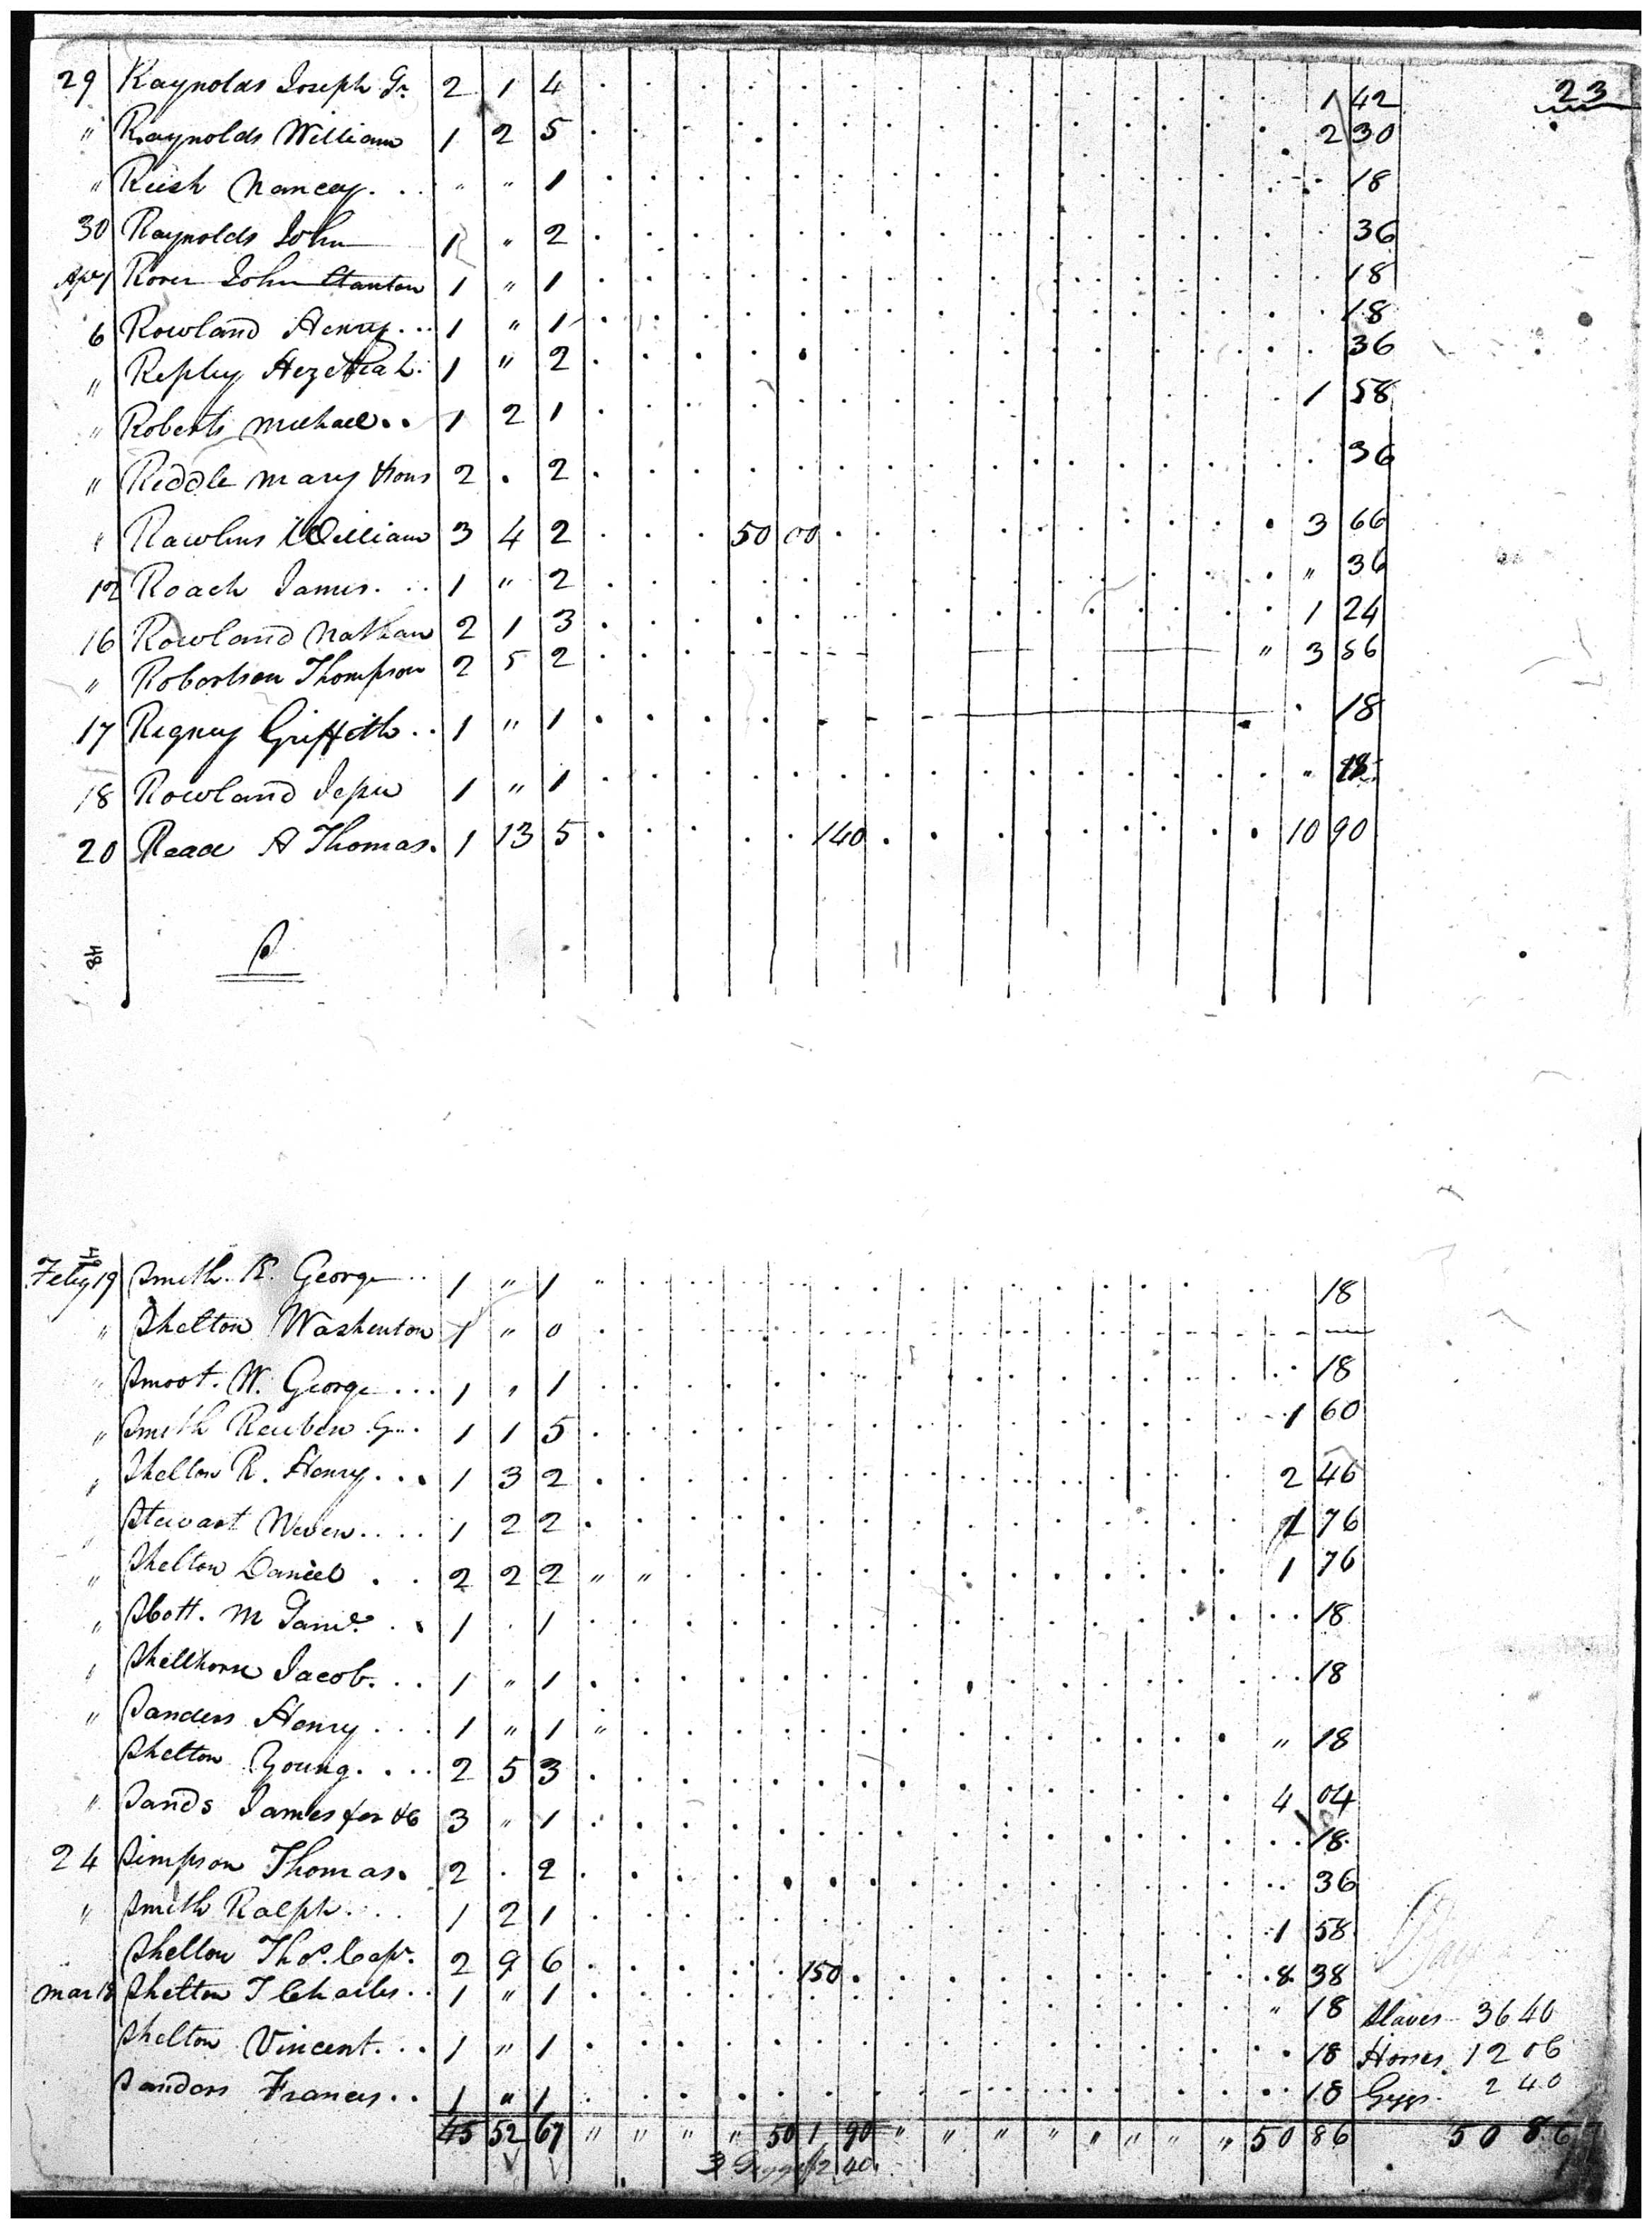 23
29 Raynolds Joseph Gr. 2 1 4 1 42
" Raynolds William 1 2 5 2 30
" Rush Nancy " " 1 18
30 Raynolds John 1 " 2 36
Apl 1 Rorer John Stanton 1 " 1 18
6 Rowland Henry 1 " 1 18
" Hezekiah 1 " 2 36
" Roberts Michael 1 2 1 1 58
" Riddle Mary & sons 2 . 2 36
" Rawlins William 3 4 2 50 00 3 66
12 Roach James 1 " 2 " 36
16 Rowland Nathan 2 1 3 1 24
" Robertson Thompson 2 5 2 " 3 86
17 Rigney Griffith 1 " 1 18
18 Rowland Jesse 1 " 1 " 18
20 Read A Thomas 1 13 5 140 10 90
48
S
Feby 19 Smith K. George 1 " 1 " 18
" Shelton Washenton 1 " 0
" Smoot. W. George 1 " 1 18
" Smith Reuben 1 1 5 1 60
" Shelton R. Henry 1 3 2 2 46
" Stewart 1 2 2 1 76
" Shelton Daniel 2 2 2 " " 1 76
" Scott. M 1 . 1 18
" Shellhorse Jacob 1 " 1 18
" Sanders Henry 1 " 1 " " 18
Shelton Young 2 5 3 4 04
" Sands James for 3 " 1 18
24 Simpson Thomas 2 . 2 36
" Smith Ralph 1 2 1 1 58
Shelton Thos. Capt. 2 9 6 150 8 38
Mar 18 Shelton T Charles 1 " 1 " 18 Slaves 36 40
Shelton Vincent 1 " 1 18 Horses 12 06
Sanders Francis 1 " 1 18 Gigs 2 40
45 52 67 " " " " 50 1 90 " " " " " " " " 50 86 50 86
3 2 40